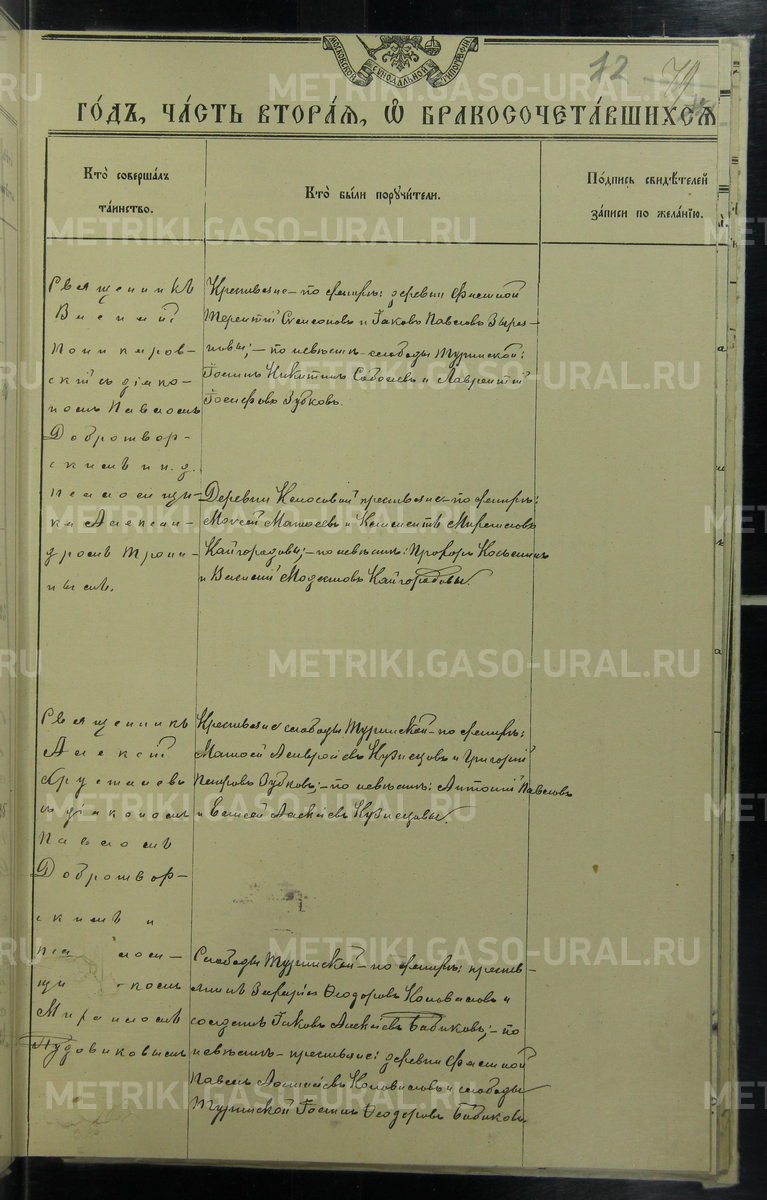 МОСКОВСКОЙ СѴНОДАЛЬНОЙ ТИПОГРАФІИ
12 79
ГОДЪ, ЧАСТЬ ВТОРАЯ, Ѽ БРАКОСОЧЕТАВШИХСЯ
Кто совершалъ
таинство.
Кто были поручители.
Подпись свидѣтелей
записи по желанію.
Священникъ
Поникаров-
скій съ діако-
номъ Павломъ
Добротвор-
скимъ и и. д.
псаломщи-
ка Алексан-
дромъ Трони-
нымъ.
Крестьяне – по женихѣ: деревни
Терентій Симеоновъ и Іаковъ Павловъ Зыря-
новы; – по невѣстѣ – слободы Туринской:
Іосифъ Никитинъ и Лаврентій
Іосифовъ Зубковъ.
Деревни Колосовой крестьяне – по женихѣ:
Моисей Матѳеевъ и Климентъ
Кайгородовы; – по невѣстѣ: Прохоръ Косьминъ
и Василій Модестовъ Кайгородовы.
Священникъ
Алексій
Хрусталевъ
съ діакономъ
Павломъ
Добротвор-
скимъ и
псаломщи-
комъ
Пудовиковымъ
Крестьяне слободы Туринской – по женихѣ:
Матѳей Андреевъ Кузнецовъ и Григорій
Петровъ Зубковъ; – по невѣстѣ: Антоній Павловъ
и Елисей Алексіевъ Кузнецовы.
Слободы Туринской – по женихѣ: кресть-
янинъ Захарія Ѳеодоровъ Коноваловъ и
солдатъ Іаковъ Алексіевъ Бабиковъ; – по
невѣстѣ – крестьяне: деревни
Павелъ Коноваловъ и слободы
Туринской Іосифъ Ѳеодоровъ Бабиковъ.
METRIKI.GASO-URAL.RU